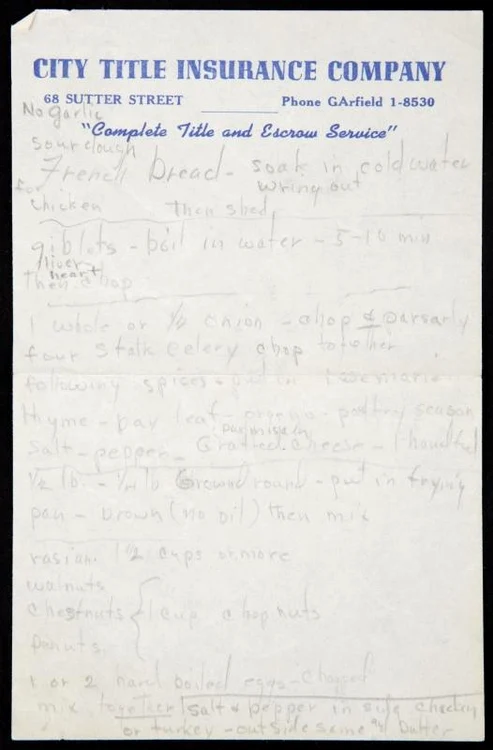 CITY TITLE INSURANCE COMPANY
68 SUTTER STREET Phone GArfield 1-8530
"Complete Title and Escrow Service"
No Garlic
sourdough
French bread - soak in cold water
wring out
for
chicken then shed
giblets - boil in water - 5-10 min
liver
heart
then chop
1 whole or 1/2 onion - chop & parsarly
four stalk celery chop together
following spices - put in rosemarie
thyme - bay leaf - oregno - poltry season
parmisian
salt - pepper - Grated cheese - 1 handful
1/2 lb. - 1/4 lb Ground round - put in frying
pan - brown (no oil) then mix
rasian 1 1/2 cups or more
walnuts
chestnuts { 1 cup chop nuts
1 or 2 hard boiled eggs - chopped
mix together salt & pepper in side chicken
or turkey - outside same butter